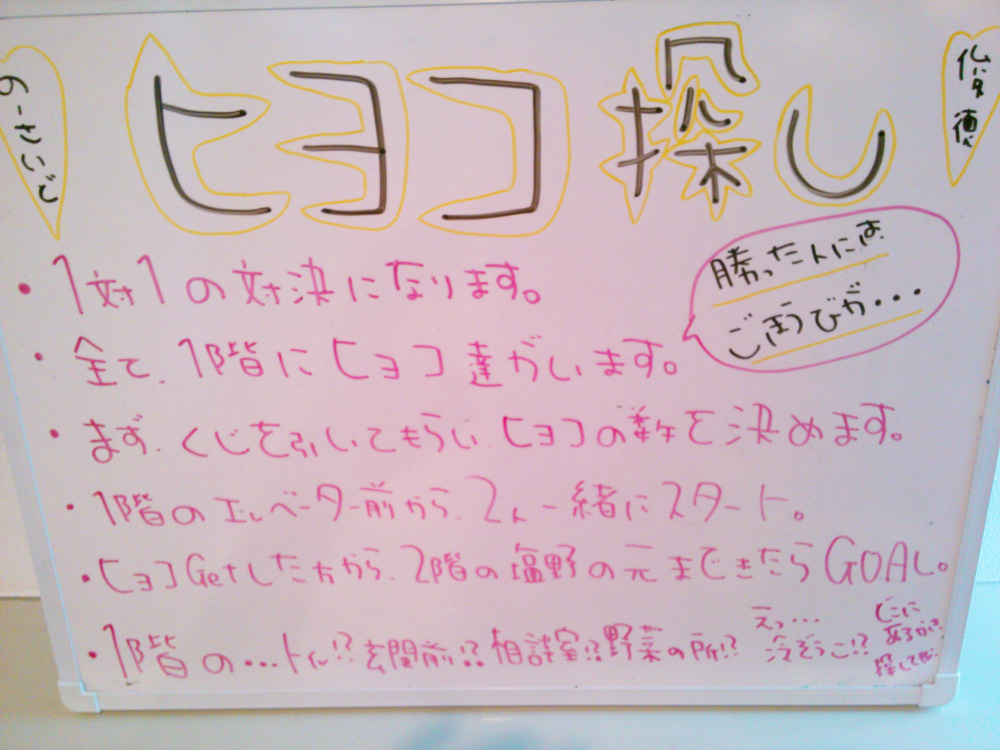 ヒヨコ探し
・1対1の対決になります。
勝った人には
ごほうびが・・・
・全て、1階にヒヨコ達がいます。
・まず、くじを引いてもらい、ヒヨコの数を決めます。
・1階のエレベーター前から、2人一緒にスタート。
・ヒヨコGetした方から、2階の塩野の元まできたらGOAL。
・1階の…トイレ!?玄関前!?相談室!?野菜の所!?
えっ…
冷ぞうこ!?
どこに
あるかは
探してね